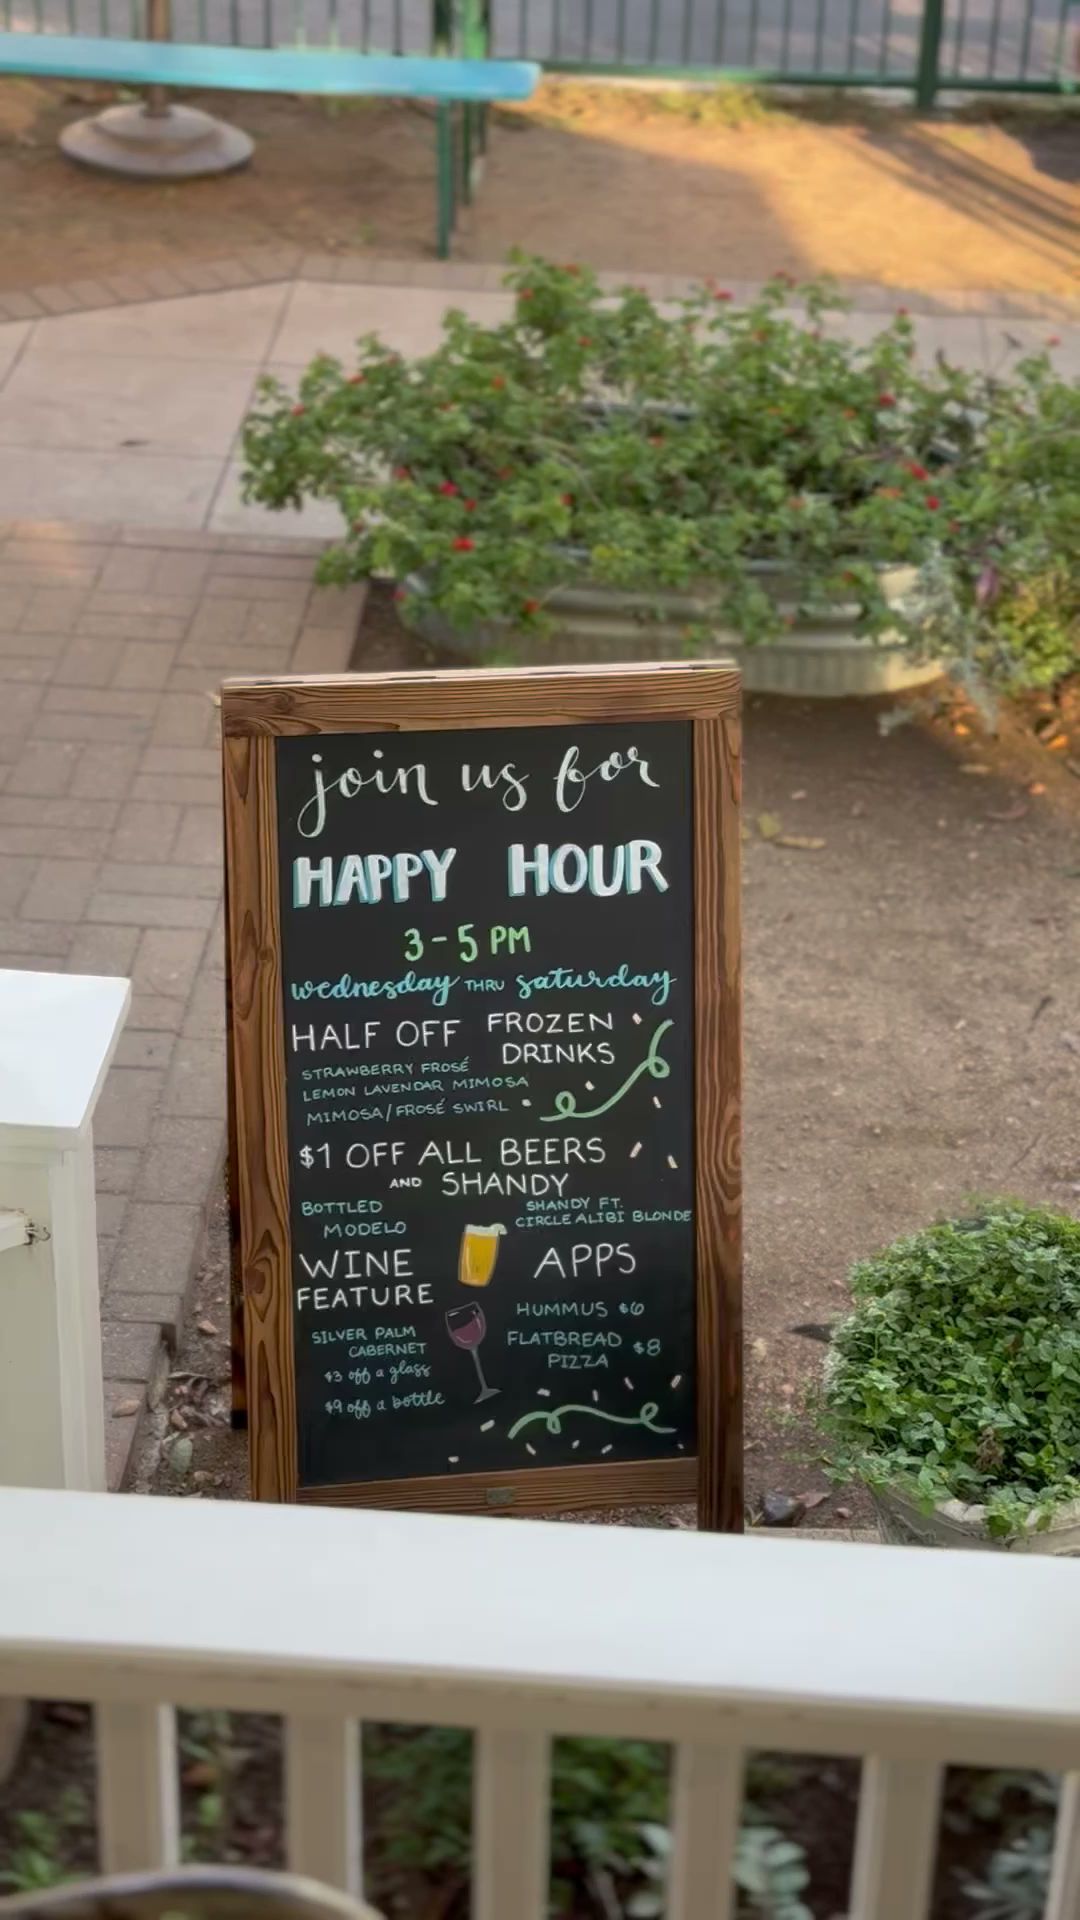 join us for
HAPPY HOUR
3-5 PM
wednesday THRU saturday
HALF OFF FROZEN DRINKS
STRAWBERRY FROSÉ
LEMON LAVENDAR MIMOSA
MIMOSA/FROSÉ SWIRL
$1 OFF ALL BEERS
AND SHANDY
BOTTLED
MODELO
SHANDY FT.
CIRCLE ALIBI BLONDE
WINE
FEATURE
SILVER PALM
CABERNET
$3 off a glass
$9 off a bottle
APPS
HUMMUS $6
FLATBREAD $8
PIZZA